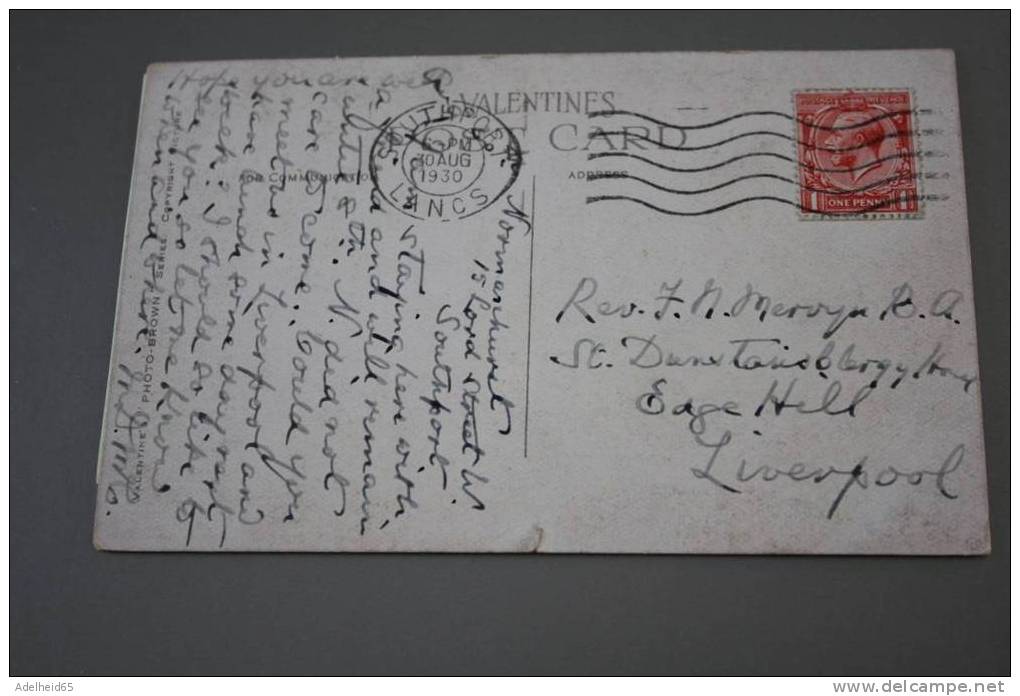 VALENTINES
POST CARD
FOR COMMUNICATION
ADDRESS
SOUTHPORT
LANCS
PM
30 AUG
1930
ONE PENNY
Normanhurst
15 Lord Street W
Southport
staying here with
a friend and will remain
until 8th. N. did not
care to come. Could you
meet us in Liverpool and
have lunch some day next
week? I should so like to
see you so let me know
when and where.
Hope you are well
Rev. F. N. Mervyn B.A.
St. Dunstans Clergy House
Edge Hill
Liverpool
VALENTINE'S PHOTO-BROWN SERIES COPYRIGHT
Adelheid65
http://www.delcampe.net